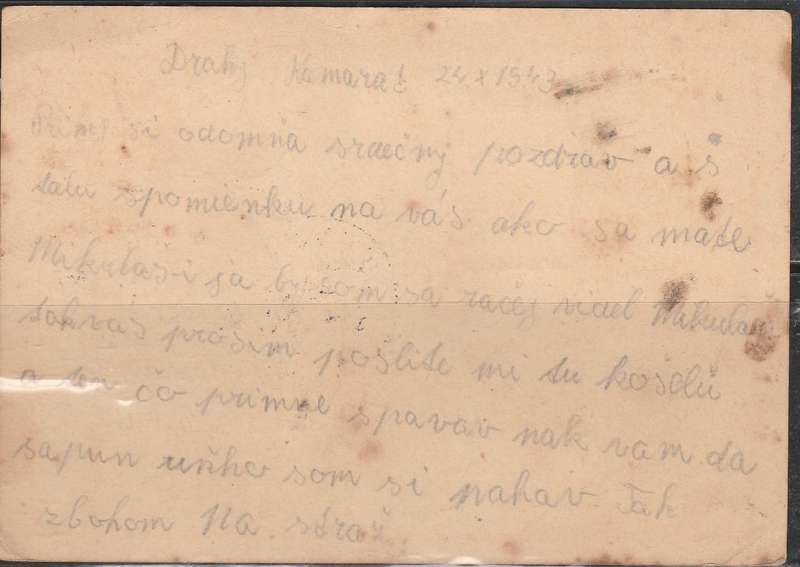 Drahy Kamarat 24 X 1943
Primy si odomňa srdečny pozdrav a š
talu spomienku na vás ako sa mate
Mikulaši ja by som sa račej videl Mikulaši
tak vas prosim pošlite mi tu košelu
a ten čo primne spavav nak vam da
sapun uňho som si nahav Tak
zbohom Na stráž